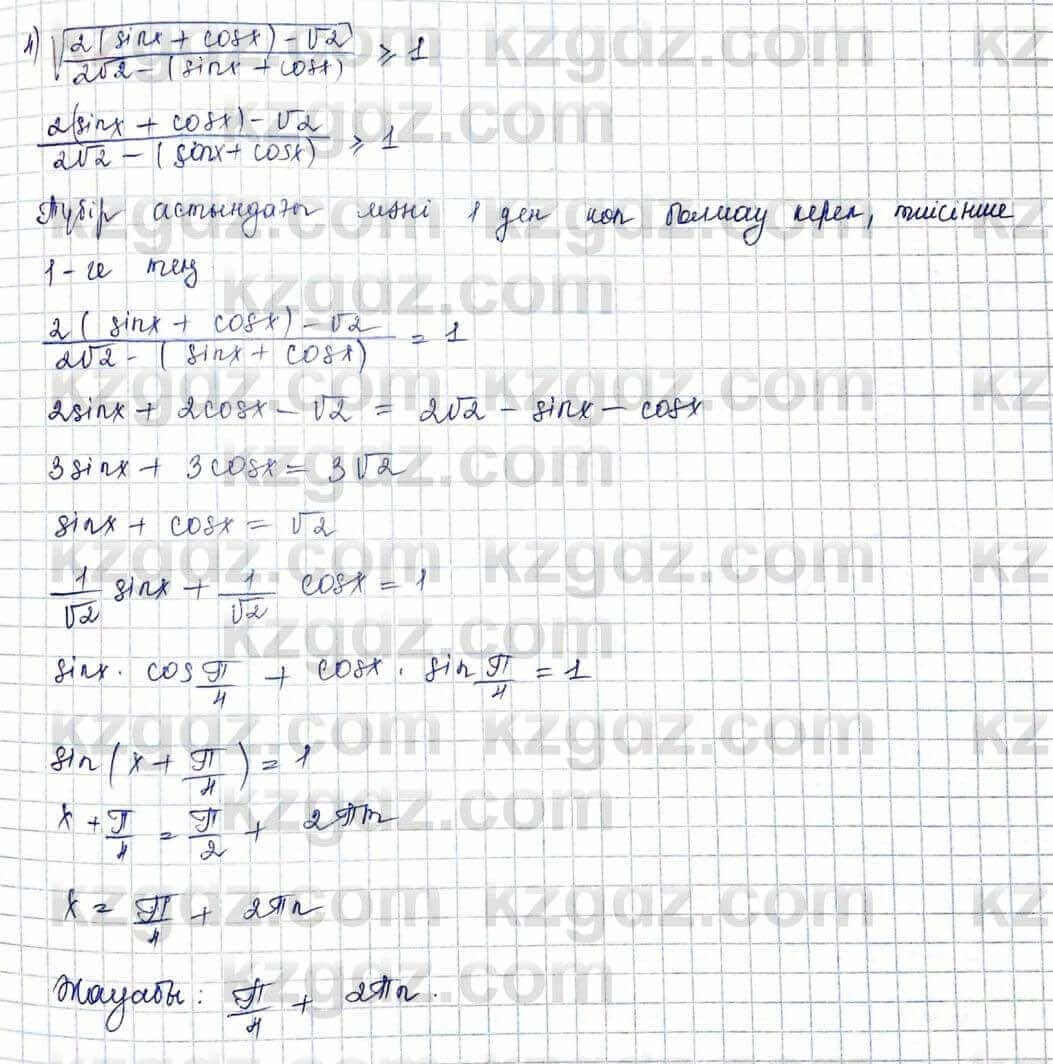 4) √(2(sinx + cosx) - √2)/(2√2 - (sinx + cosx)) ⩾ 1
(2(sinx + cosx) - √2)/(2√2 - (sinx + cosx)) ⩾ 1
Түбір астындағы мәні 1 ден көп болмау керек, тиісінше
1-ге тең
(2(sinx + cosx) - √2)/(2√2 - (sinx + cosx)) = 1
2sinx + 2cosx - √2 = 2√2 - sinx - cosx
3sinx + 3cosx = 3√2
sinx + cosx = √2
1/√2 sinx + 1/√2 cosx = 1
sinx · cos π/4 + cosx · sin π/4 = 1
sin(x + π/4) = 1
x + π/4 = π/2 + 2πn
x = π/4 + 2πn
Жауабы: π/4 + 2πn.